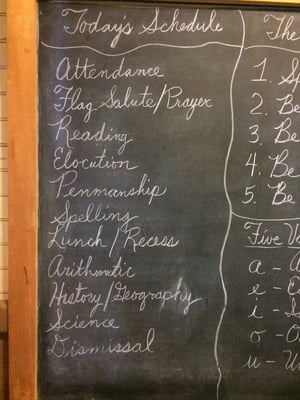 Today's Schedule
Attendance
Flag Salute/Prayer
Reading
Elocution
Penmanship
Spelling
Lunch/Recess
Arithmetic
History/Geography
Science
Dismissal
The
1.
2. Be
3. Be
4. Be
5. Be
Five
a -
e -
i -
o -
u -